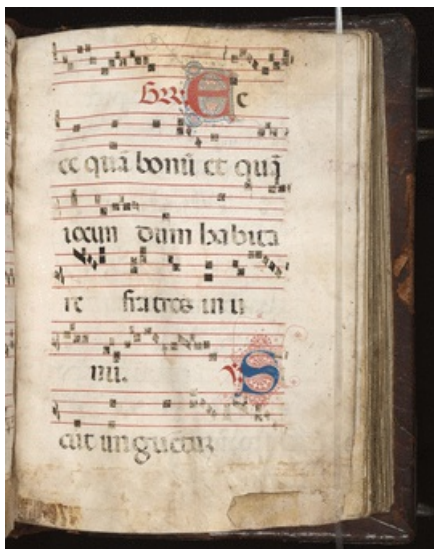 Grr E c
ce quā bonū et quā
iocun dum habita
re fratres in u
nu.
℣ S
cut unguētū